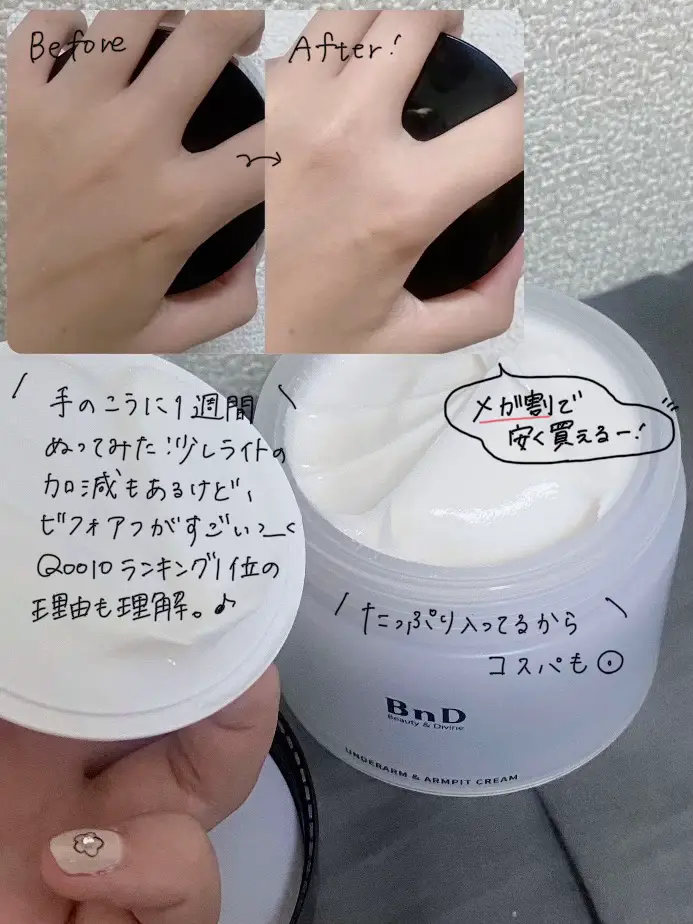 Before
After!
手のこうに1週間
ぬってみた!少しライトの
加減もあるけど、
ビフォアフがすごいっ
Qoo10ランキング1位の
理由も理解。♪
メガ割で
安く買えるー!
たっぷり入ってるから
コスパも⊙
BnD
Beauty & Divine
UNDERARM & ARMPIT CREAM